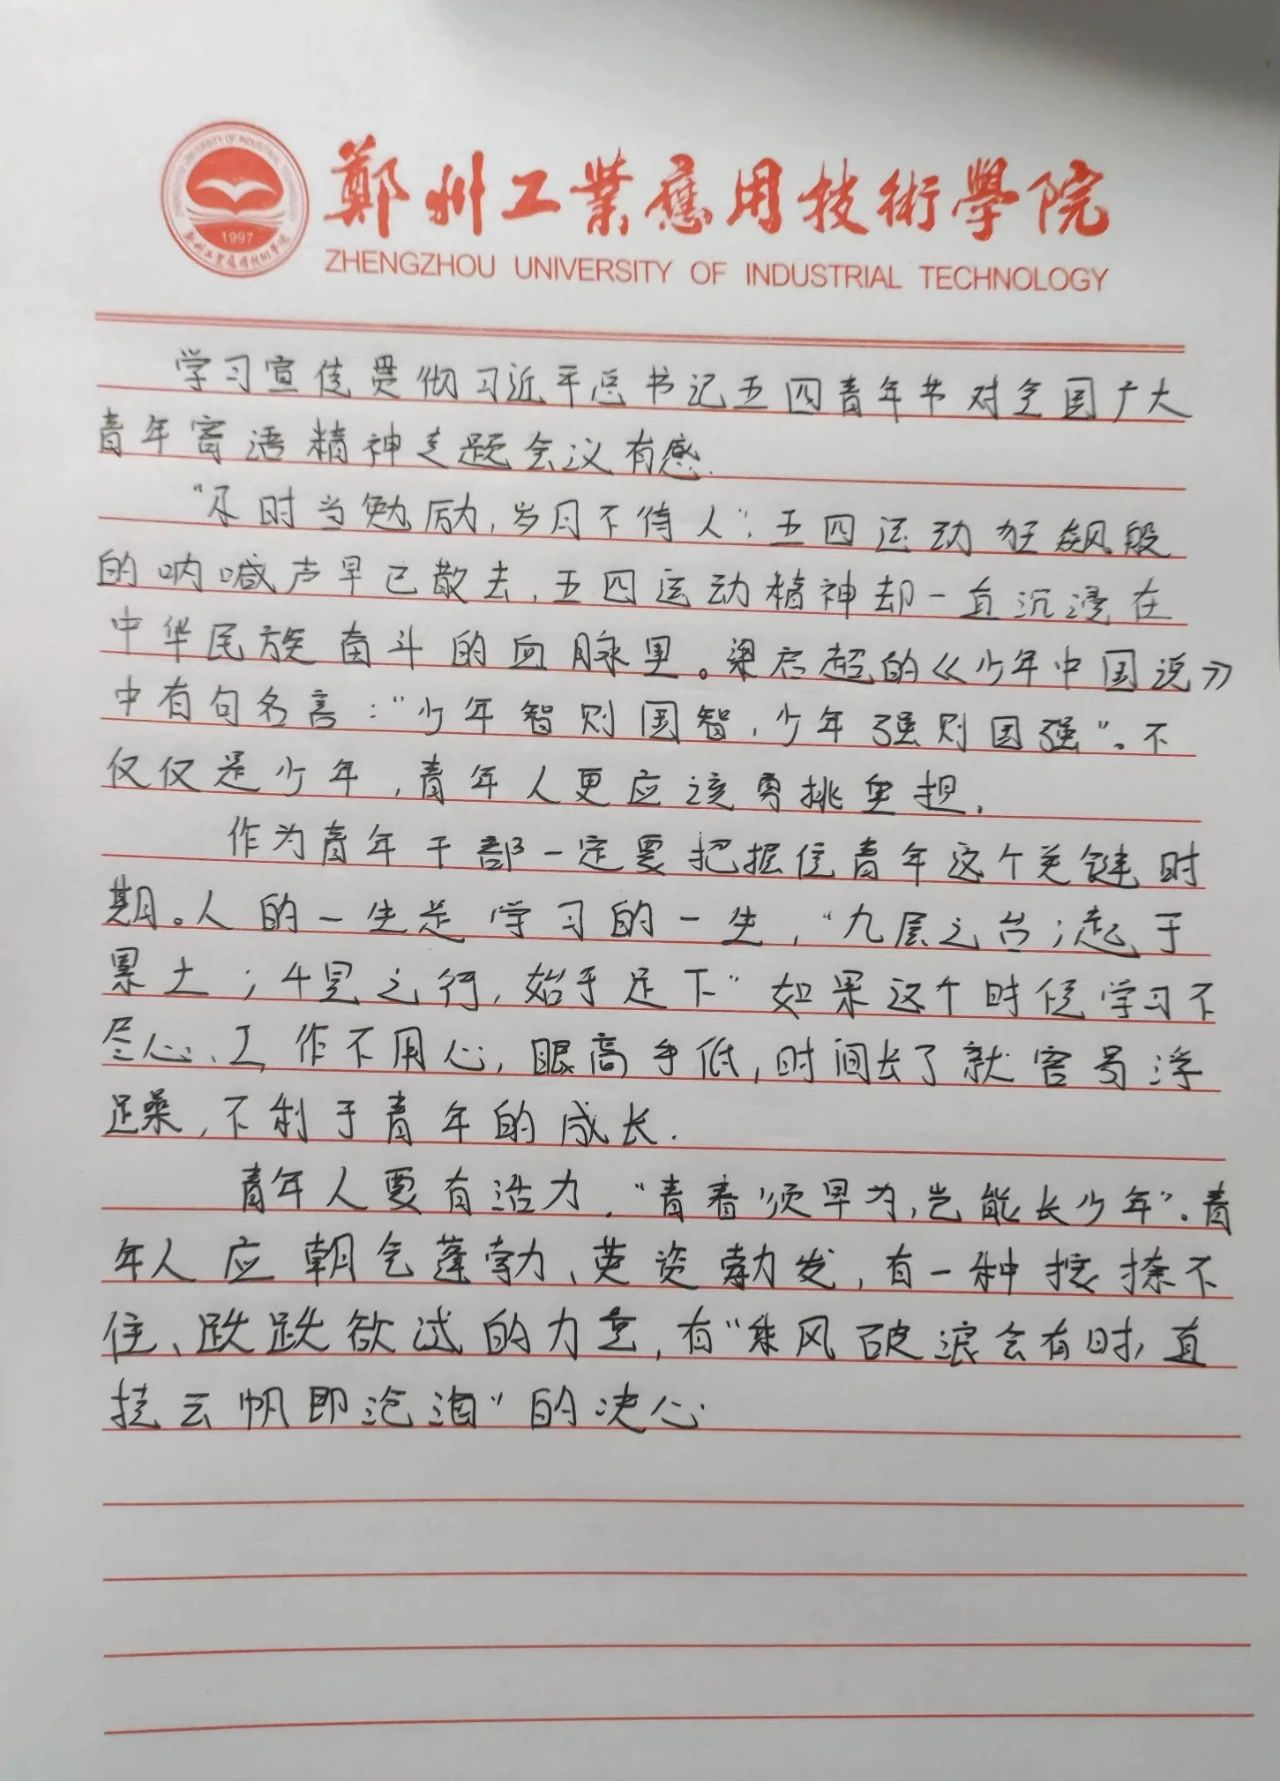 鄭州工業應用技術學院
ZHENGZHOU UNIVERSITY OF INDUSTRIAL TECHNOLOGY
ZHENGZHOU UNIVERSITY OF INDUSTRIAL TECHNOLOGY
1997
鄭州工業應用技術學院
学习宣传贯彻习近平总书记五四青年节对全国广大
青年寄语精神专题会议有感.
“及时当勉励,岁月不待人”.五四运动狂飙般
的呐喊声早已散去,五四运动精神却一直沉浸在
中华民族奋斗的血脉里。梁启超的《少年中国说》
中有句名言:“少年智则国智,少年强则国强”。不
仅仅是少年,青年人更应该勇挑重担.
作为青年干部一定要把握住青年这个关键时
期。人的一生是学习的一生,“九层之台;起于
累土;千里之行,始于足下”如果这个时候学习不
尽心、工作不用心,眼高手低,时间长了就容易浮
躁,不利于青年的成长.
青年人要有活力,“青春须早为,岂能长少年”。青
年人应朝气蓬勃、英姿勃发,有一种按捺不
住、跃跃欲试的力量,有“乘风破浪会有时,直
挂云帆即沧海”的决心.